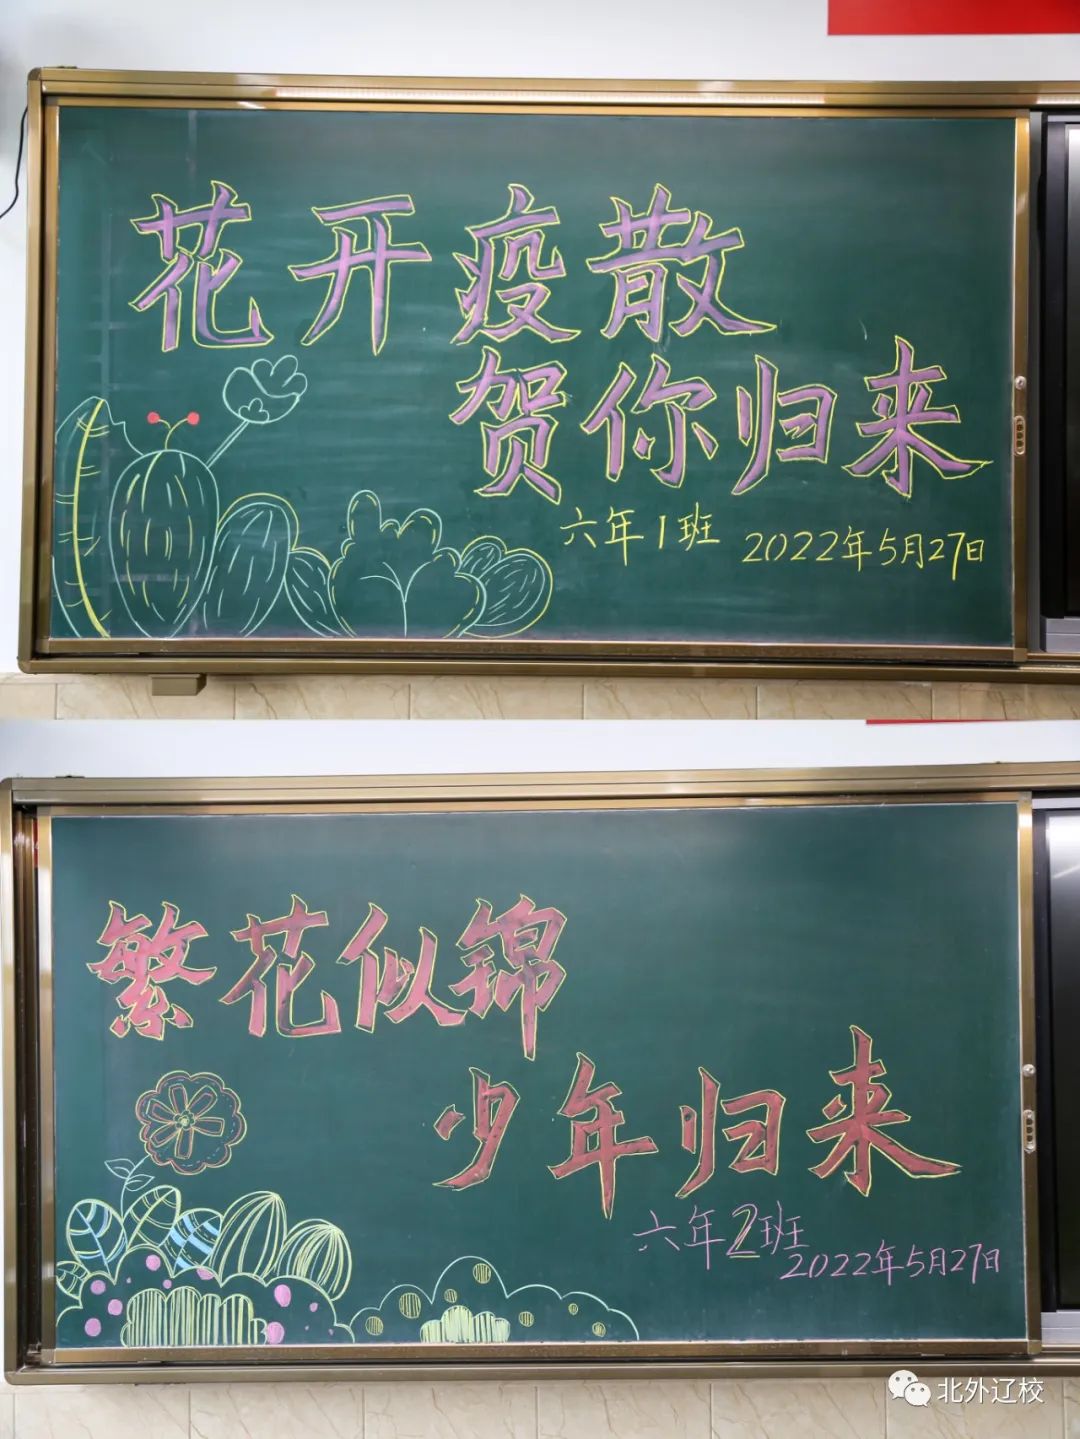 花开疫散
贺你归来
六年1班
2022年5月27日
繁花似锦
少年归来
六年2班
2022年5月27日
北外辽校